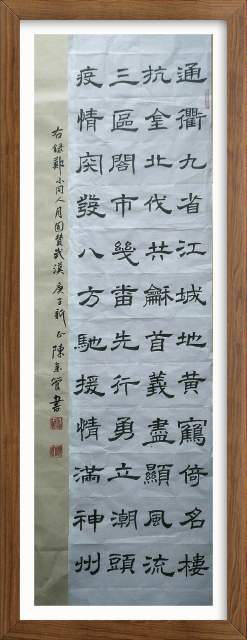 通衢九省江城地黄鶴倚名樓
抗金北伐共龢首義盡顯風流
三區閣市幾番先行勇立潮頭
疫情突發八方馳援情滿神州
右録鄭小同人月圓贊武漢 庚子 陳 書